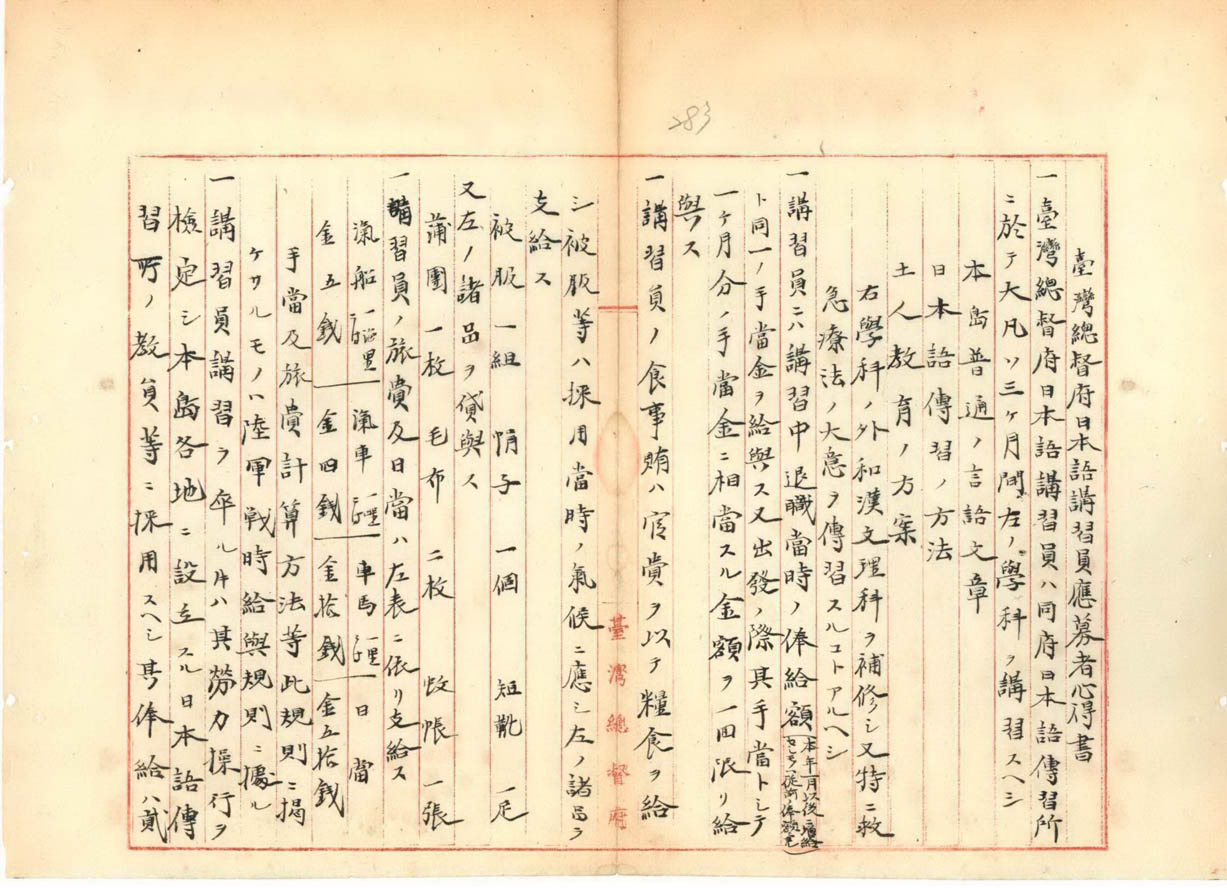 283
臺灣總督府日本語講習員應募者心得書
一臺灣總督府日本語講習員ハ同府日本語傳習所
ニ於テ大凡ソ三ヶ月間左ノ學科ヲ講習スヘシ
本島普通ノ言語文章
日本語傳習ノ方法
土人教育ノ方案
右學科ノ外和漢文理科ヲ補修シ又特ニ救
急療法ノ大意ヲ傳習スルコトアルヘシ
一講習員ニハ講習中退職當時ノ俸給額
本年一月以後ニ増給
ト同一ノ手當金ヲ給與ス又出發ノ際其手當トシテ
一ヶ月分ノ手當金ニ相當スル金額ヲ一回限リ給
與ス
一講習員ノ食事賄ハ官賞ヲ以テ糧食ヲ給
シ被服等ハ採用當時ノ氣候ニ應シ左ノ諸品ヲ
支給ス
被服 一組 帽子 一個 短靴 一足
又左ノ諸品ヲ貸與ス
蒲團 一枚 毛布 二枚 蚊帳 一張
一講習員ノ旅費及日當ハ左表ニ依リ支給ス
滊船一海里ニ付 滊車一哩ニ付 車馬一里ニ付 日當
金五錢 金四錢 金拾錢 金五拾錢
手當及旅費計算方法等此規則ニ掲
ケサルモノハ陸軍戰時給與規則ニ據ル
一講習員講習ヲ卒ル片ハ其勞力操行ヲ
檢定シ本島各地ニ設立スル日本語傳
習所ノ教員等ニ採用スヘシ其俸給ハ貳
臺灣總督府